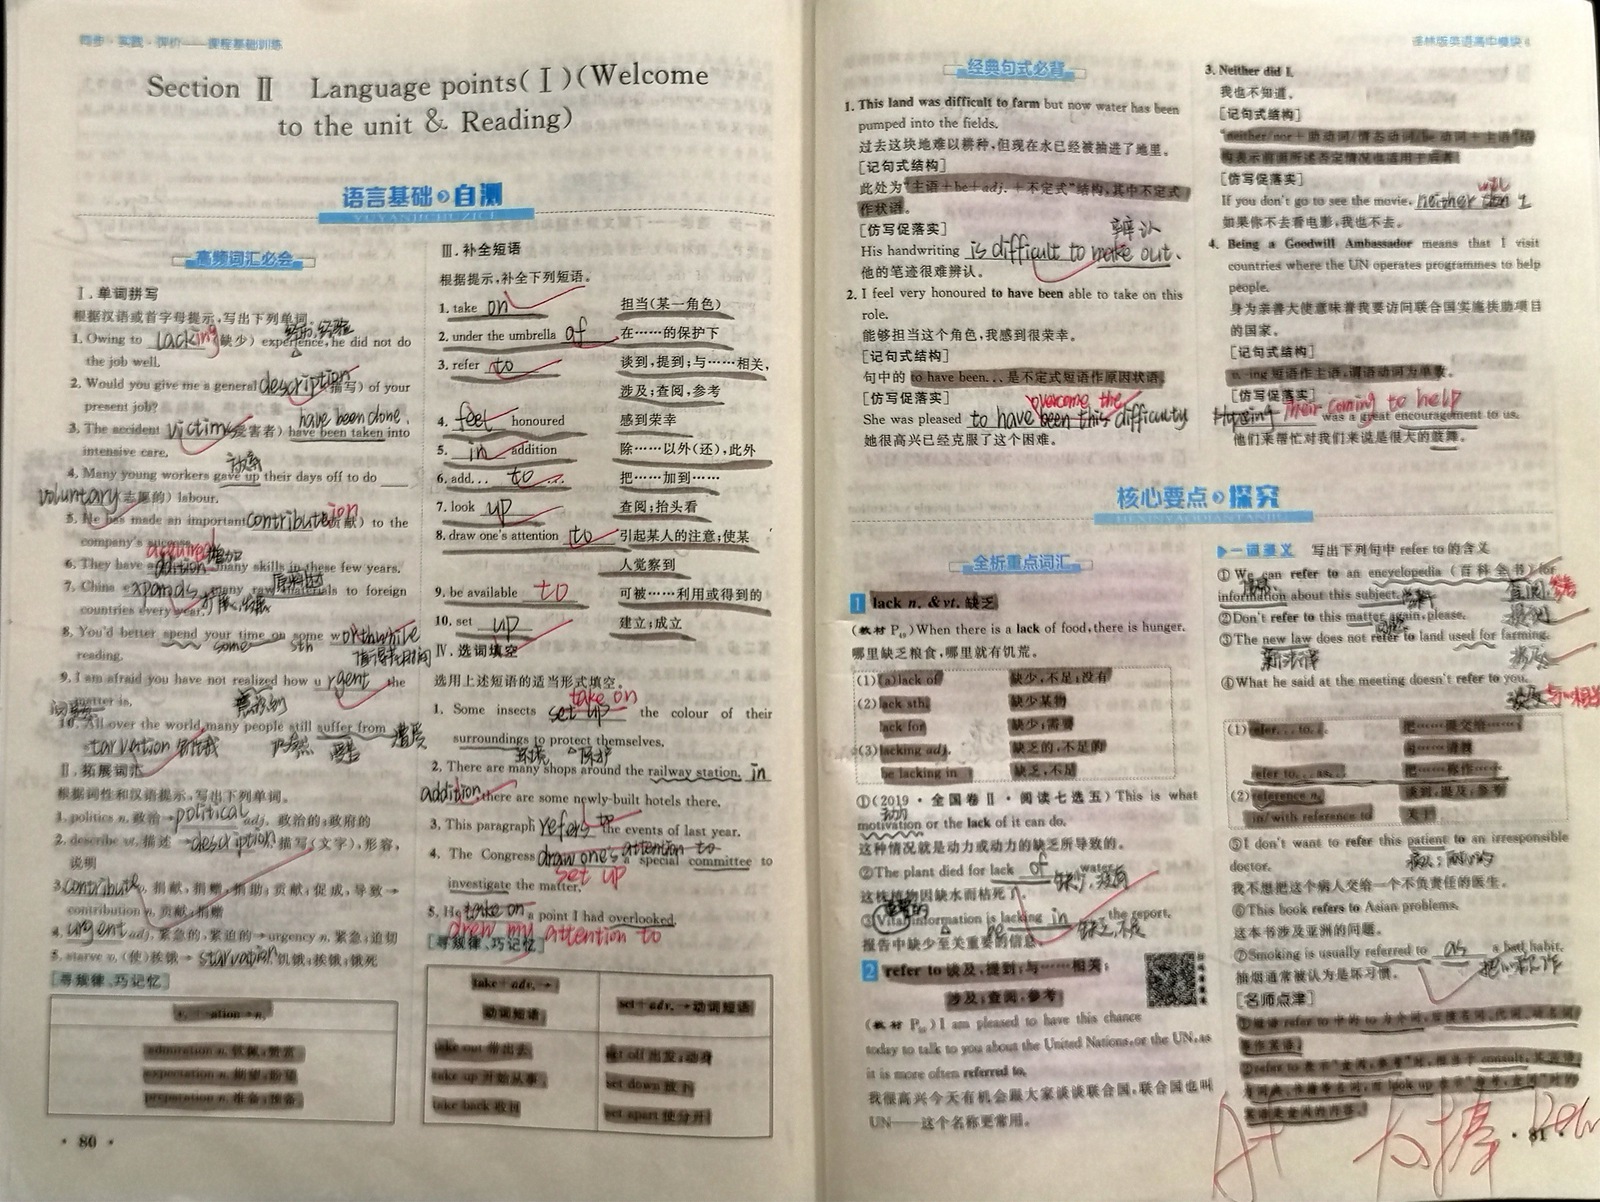 同步·实践·评价——课程基础训练
Section Ⅱ Language points(Ⅰ)(Welcome
to the unit & Reading)
语言基础 自测
YUYANJICHUZICE
高频词汇必会
Ⅰ.单词拼写
根据汉语或首字母提示,写出下列单词。
经历,经验
1. Owing to lacking(缺少) experience, he did not do
the job well.
2. Would you give me a general description(描写) of your
present job?
have been done.
3. The accident victims(受害者) have been taken into
intensive care.
放弃
4. Many young workers gave up their days off to do
voluntary(志愿的) labour.
5. He has made an important contribution(贡献) to the
company's success.
acquired
6. They have a many skills in these few years.
7. China expands many raw materials to foreign
countries every year.
8. You'd better spend your time on some worthwhile
some sth 值得花时间
reading.
9. I am afraid you have not realized how urgent the
matter is.
10. All over the world, many people still suffer from
starvation 饥饿 仍然 遭受
Ⅱ.拓展词汇
根据词性和汉语提示,写出下列单词。
1. politics n. 政治→political adj. 政治的;政府的
2. describe vt. 描述→description 描写(文字),形容,
说明
3. contribute v. 捐献,捐赠,捐助;贡献;促成,导致→
contribution n. 贡献;捐赠
4. urgent adj. 紧急的,紧迫的→urgency n. 紧急;迫切
5. starve v. (使)挨饿→starvation 饥饿;挨饿;饿死
[寻规律、巧记忆]
v.+-ation→n.
admiration n. 钦佩;赞赏
expectation n. 期望;盼望
preparation n. 准备;预备
· 80 ·
Ⅲ.补全短语
根据提示,补全下列短语。
1. take on 担当(某一角色)
2. under the umbrella of 在……的保护下
3. refer to 谈到,提到;与……相关,
涉及;查阅,参考
4. feel honoured 感到荣幸
5. in addition 除……以外(还),此外
6. add... to 把……加到……
7. look up 查阅;抬头看
8. draw one's attention to 引起某人的注意;使某
人觉察到
9. be available to 可被……利用或得到的
10. set up 建立;成立
Ⅳ.选词填空
选用上述短语的适当形式填空。
take on
1. Some insects set up the colour of their
surroundings to protect themselves.
环境 保护
2. There are many shops around the railway station, in
addition, there are some newly-built hotels there.
3. This paragraph refers to the events of last year.
4. The Congress draw one's attention to a special committee to
set up
investigate the matter.
5. He take on a point I had overlooked.
drew my attention to
[寻规律、巧记忆]
take+adv.→
动词短语
set+adv.→动词短语
take out 带出去
take up 开始从事
take back 收回
set off 出发;动身
set down 放下
set apart 使分开
译林版英语高中模块6
经典句式必背
1. This land was difficult to farm but now water has been
pumped into the fields.
过去这块地难以耕种,但现在水已经被抽进了地里。
[记句式结构]
此处为"主语+be+adj.+不定式"结构,其中不定式
作状语。
[仿写促落实]
辨认
His handwriting is difficult to make out.
他的笔迹很难辨认。
2. I feel very honoured to have been able to take on this
role.
能够担当这个角色,我感到很荣幸。
[记句式结构]
句中的 to have been... 是不定式短语作原因状语。
[仿写促落实]
overcome the
She was pleased to have been this difficulty
她很高兴已经克服了这个困难。
3. Neither did I.
我也不知道。
[记句式结构]
"neither/nor+助动词/情态动词/be 动词+主语"结
构表示前面所述否定情况也适用于后者
[仿写促落实]
will
If you don't go to see the movie, neither than I
如果你不去看电影,我也不去。
4. Being a Goodwill Ambassador means that I visit
countries where the UN operates programmes to help
people.
身为亲善大使意味着我要访问联合国实施扶助项目
的国家。
[记句式结构]
v.-ing 短语作主语,谓语动词为单数。
[仿写促落实]
Their coming to help was a great encouragement to us.
他们来帮忙对我们来说是很大的鼓舞。
核心要点 探究
HEXINYAODIANTANJIU
全析重点词汇
1 lack n. & vt. 缺乏
(教材 P) When there is a lack of food, there is hunger.
哪里缺乏粮食,哪里就有饥荒。
(1)(a) lack of 缺少,不足;没有
(2) lack sth. 缺少某物
lack for 缺少;需要
(3) lacking adj. 缺乏的,不足的
be lacking in 缺乏,不足
①(2019·全国卷Ⅱ·阅读七选五) This is what
动力
motivation or the lack of it can do.
这种情况就是动力或动力的缺乏所导致的。
②The plant died for lack of water.
缺少,没有
这株植物因缺水而枯死了。
③Vital information is lacking in the report.
be 缺乏,不足
报告中缺少至关重要的信息。
2 refer to 谈及,提到;与……相关;
涉及;查阅,参考
(教材 P) I am pleased to have this chance
today to talk to you about the United Nations, or the UN, as
it is more often referred to.
我很高兴今天有机会跟大家谈谈联合国,联合国也叫
UN——这个名称更常用。
一词多义 写出下列句中 refer to 的含义
①We can refer to an encyclopedia (百科全书) for
information about this subject. 查阅,参考
②Don't refer to this matter again, please. 提到
③The new law does not refer to land used for farming.
新法律 涉及
④What he said at the meeting doesn't refer to you.
与…相关
(1) refer... to... 把……提交给……;
向……请教
refer to... as... 把……称作……
(2) reference n. 谈到,提及;参考
in/with reference to 关于
⑤I don't want to refer this patient to an irresponsible
doctor.
我不想把这个病人交给一个不负责任的医生。
⑥This book refers to Asian problems.
这本书涉及亚洲的问题。
⑦Smoking is usually referred to as a bad habit.
把…称作
抽烟通常被认为是坏习惯。
[名师点津]
①短语 refer to 中的 to 为介词,后接名词、代词、动名词
等作宾语;
②refer to 表示"查阅,参考"时,相当于 consult,其宾语
为词典、作储等名词,而 look up 表示"参考,查阅"时的
宾语是查阅的内容。
A+
· 81 ·